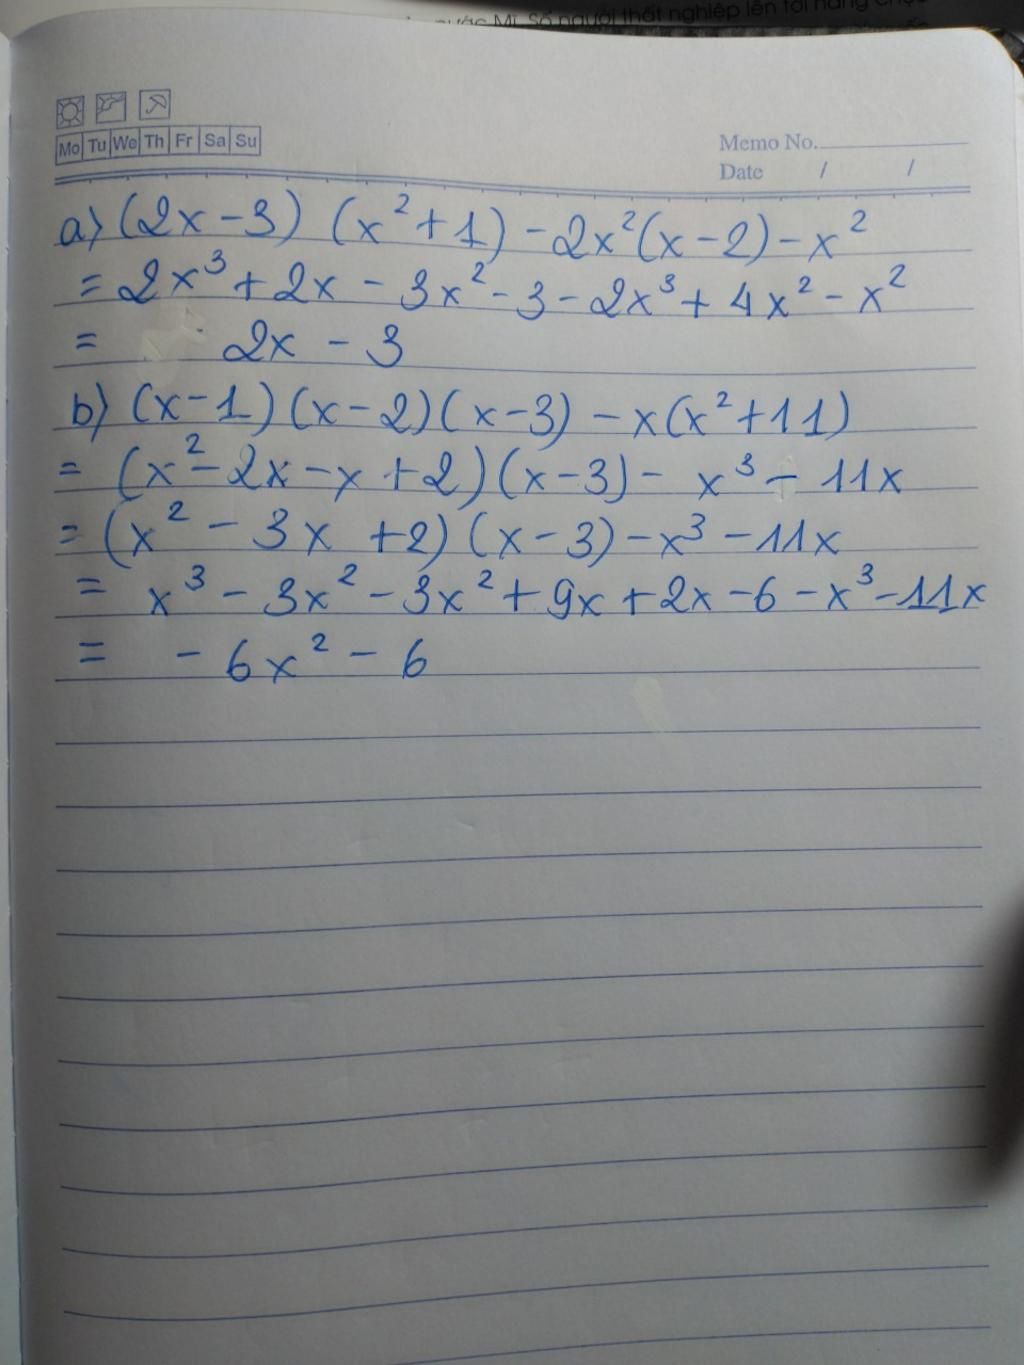 nước Mĩ. Số người thất nghiệp lên tới hàng chục
Mo Tu We Th Fr Sa Su
Memo No.
Date / /
a) (2x - 3) (x² + 1) - 2x²(x - 2) - x²
= 2x³ + 2x - 3x² - 3 - 2x³ + 4x² - x²
= 2x - 3
b) (x - 1) (x - 2) (x - 3) - x(x² + 11)
= (x² - 2x - x + 2) (x - 3) - x³ - 11x
= (x² - 3x + 2) (x - 3) - x³ - 11x
= x³ - 3x² - 3x² + 9x + 2x - 6 - x³ - 11x
= - 6x² - 6